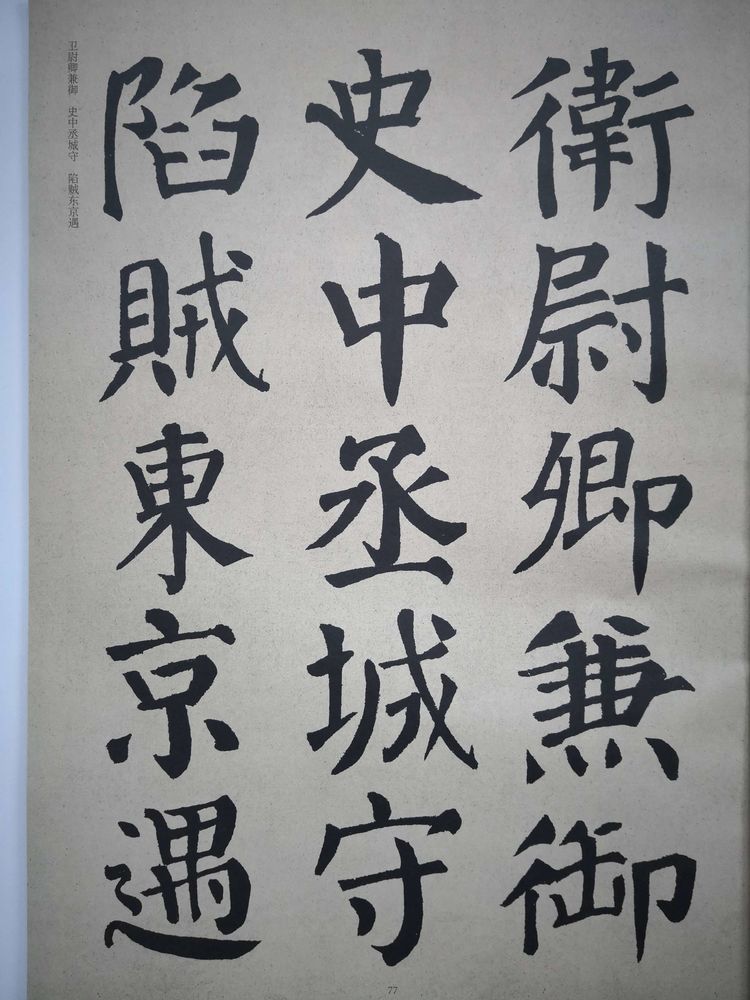 衛尉卿兼御
史中丞城守
陷賊東京遇
卫尉卿兼御　史中丞城守　陷贼东京遇
77